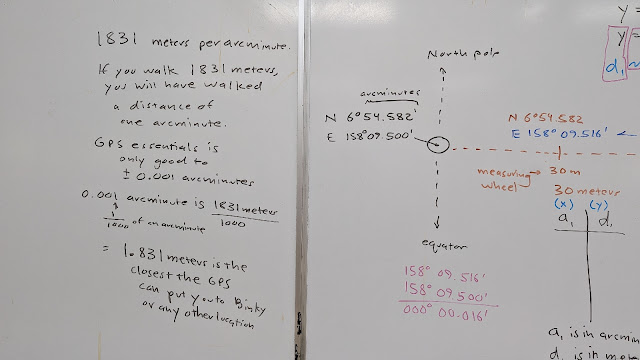 1831 meters per arcminute.
If you walk 1831 meters,
you will have walked
a distance of
one arcminute.
GPS essentials is
only good to
± 0.001 arcminutes
0.001 arcminute is 1831 meters
1000
1
1000 of an arcminute
= 1.831 meters is the
closest the GPS
can put you to Binky
or any other location
North pole
arcminutes
N 6°54.582'
E 158°09.500'
equator
158° 09.516'
158° 09.500'
000° 00.016'
y =
y =
d₁
N 6°54.582
E 158° 09.516' ←
measuring → 30 m
wheel
30 meters
(x) (y)
a₁ d₁
a₁ is in arcmin
d₁ is in me